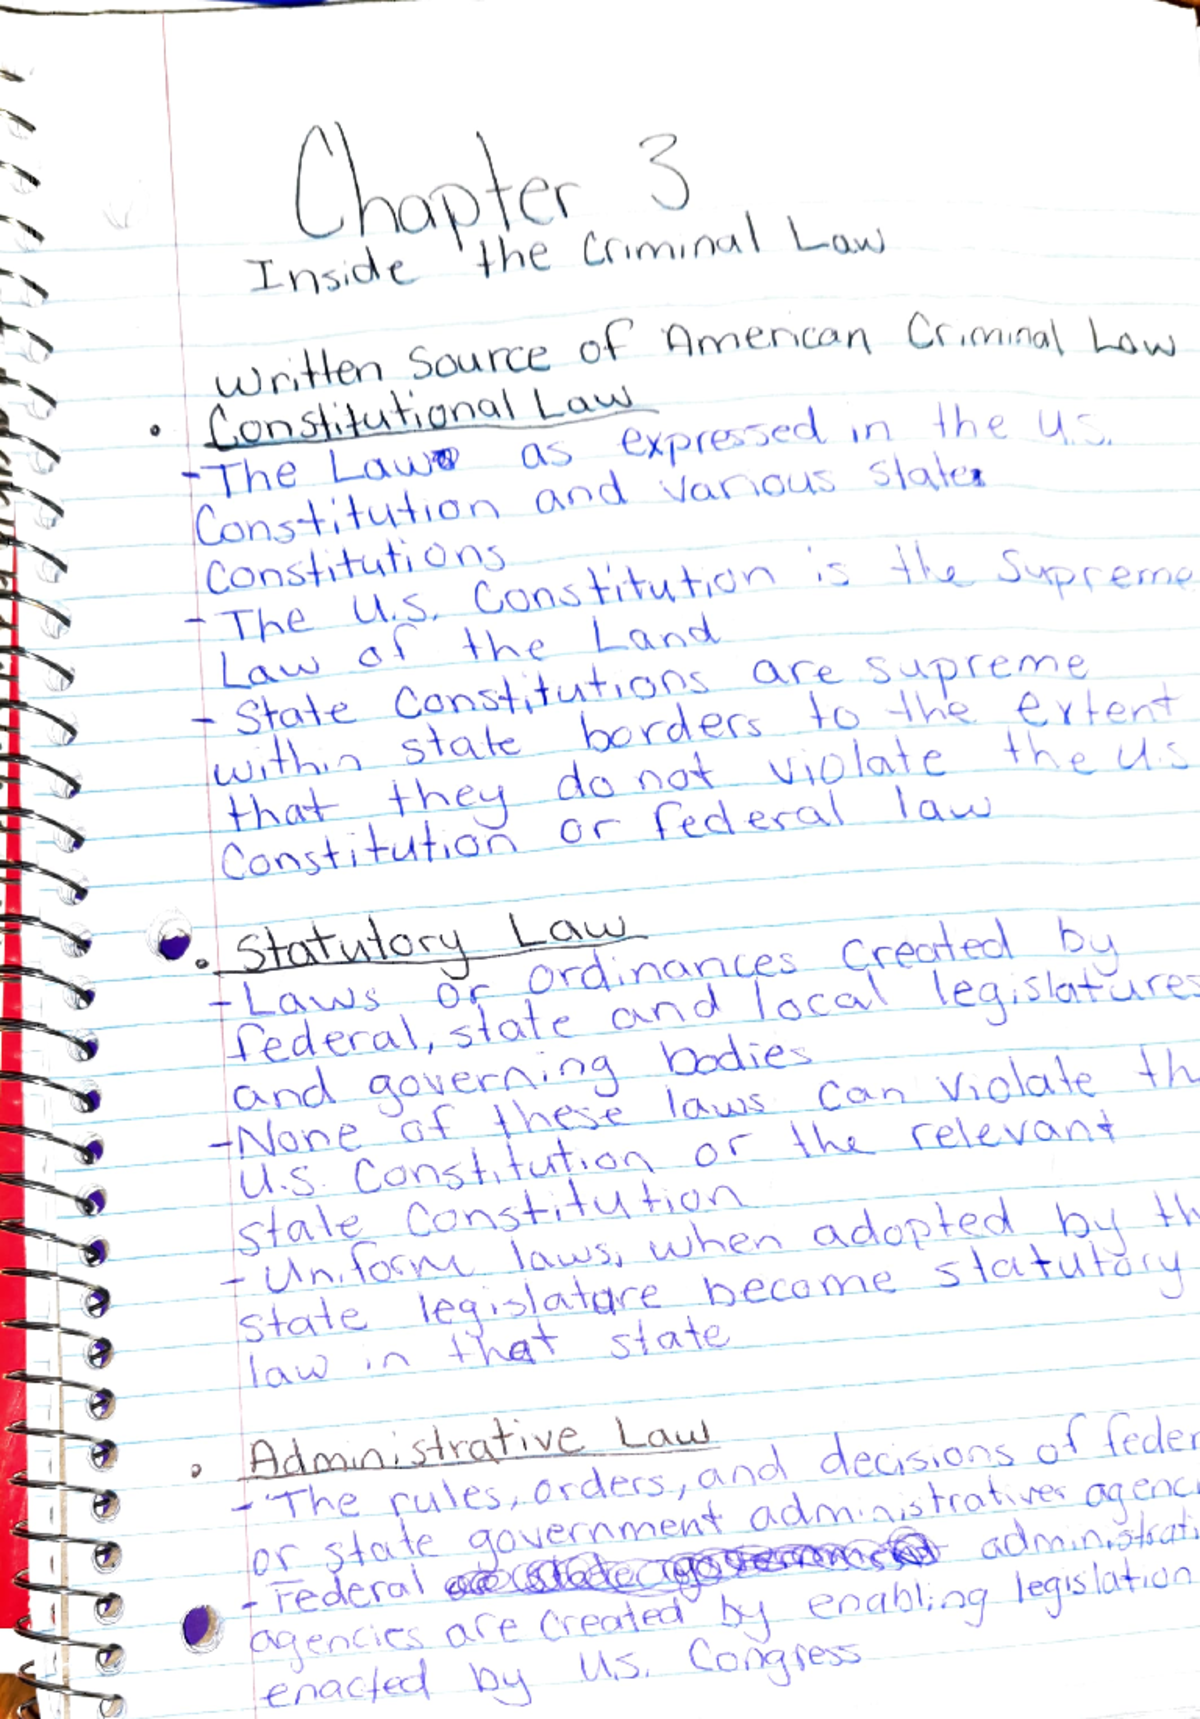 Chapter 3
Inside the Criminal Law
Written Source of American Criminal Law
• Constitutional Law
- The Law as expressed in the U.S.
Constitution and various state
Constitutions
- The U.S. Constitution is the Supreme
Law of the Land
- State Constitutions are supreme
within state borders to the extent
that they do not violate the U.S
Constitution or federal law
• Statutory Law
- Laws or ordinances created by
federal, state and local legislatures
and governing bodies
- None of these laws can violate th
U.S. Constitution or the relevant
state Constitution
- Uniform laws, when adopted by th
state legislature become statutory
law in that state
• Administrative Law
- The rules, orders, and decisions of feder
or state government administrative agenci
- Federal administrati
agencies are created by enabling legislation
enacted by U.S. Congress